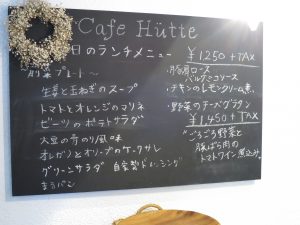 Cafe Hütte
本日のランチメニュー
~前菜プレート~
生姜と玉ねぎのスープ
トマトとオレンジのマリネ
ビーツのポテトサラダ
大豆の青のり風味
オレガノとオリーブのケークサレ
グリーンサラダ 自家製ドレッシング
まるパン
¥1,250+TAX
・豚肩ロース
バルサミコソース
・チキンのレモンクリーム煮
・野菜のチーズグラタン
¥1,450+TAX
・ごろごろ野菜と
豚ばら肉の
トマトワイン煮込み